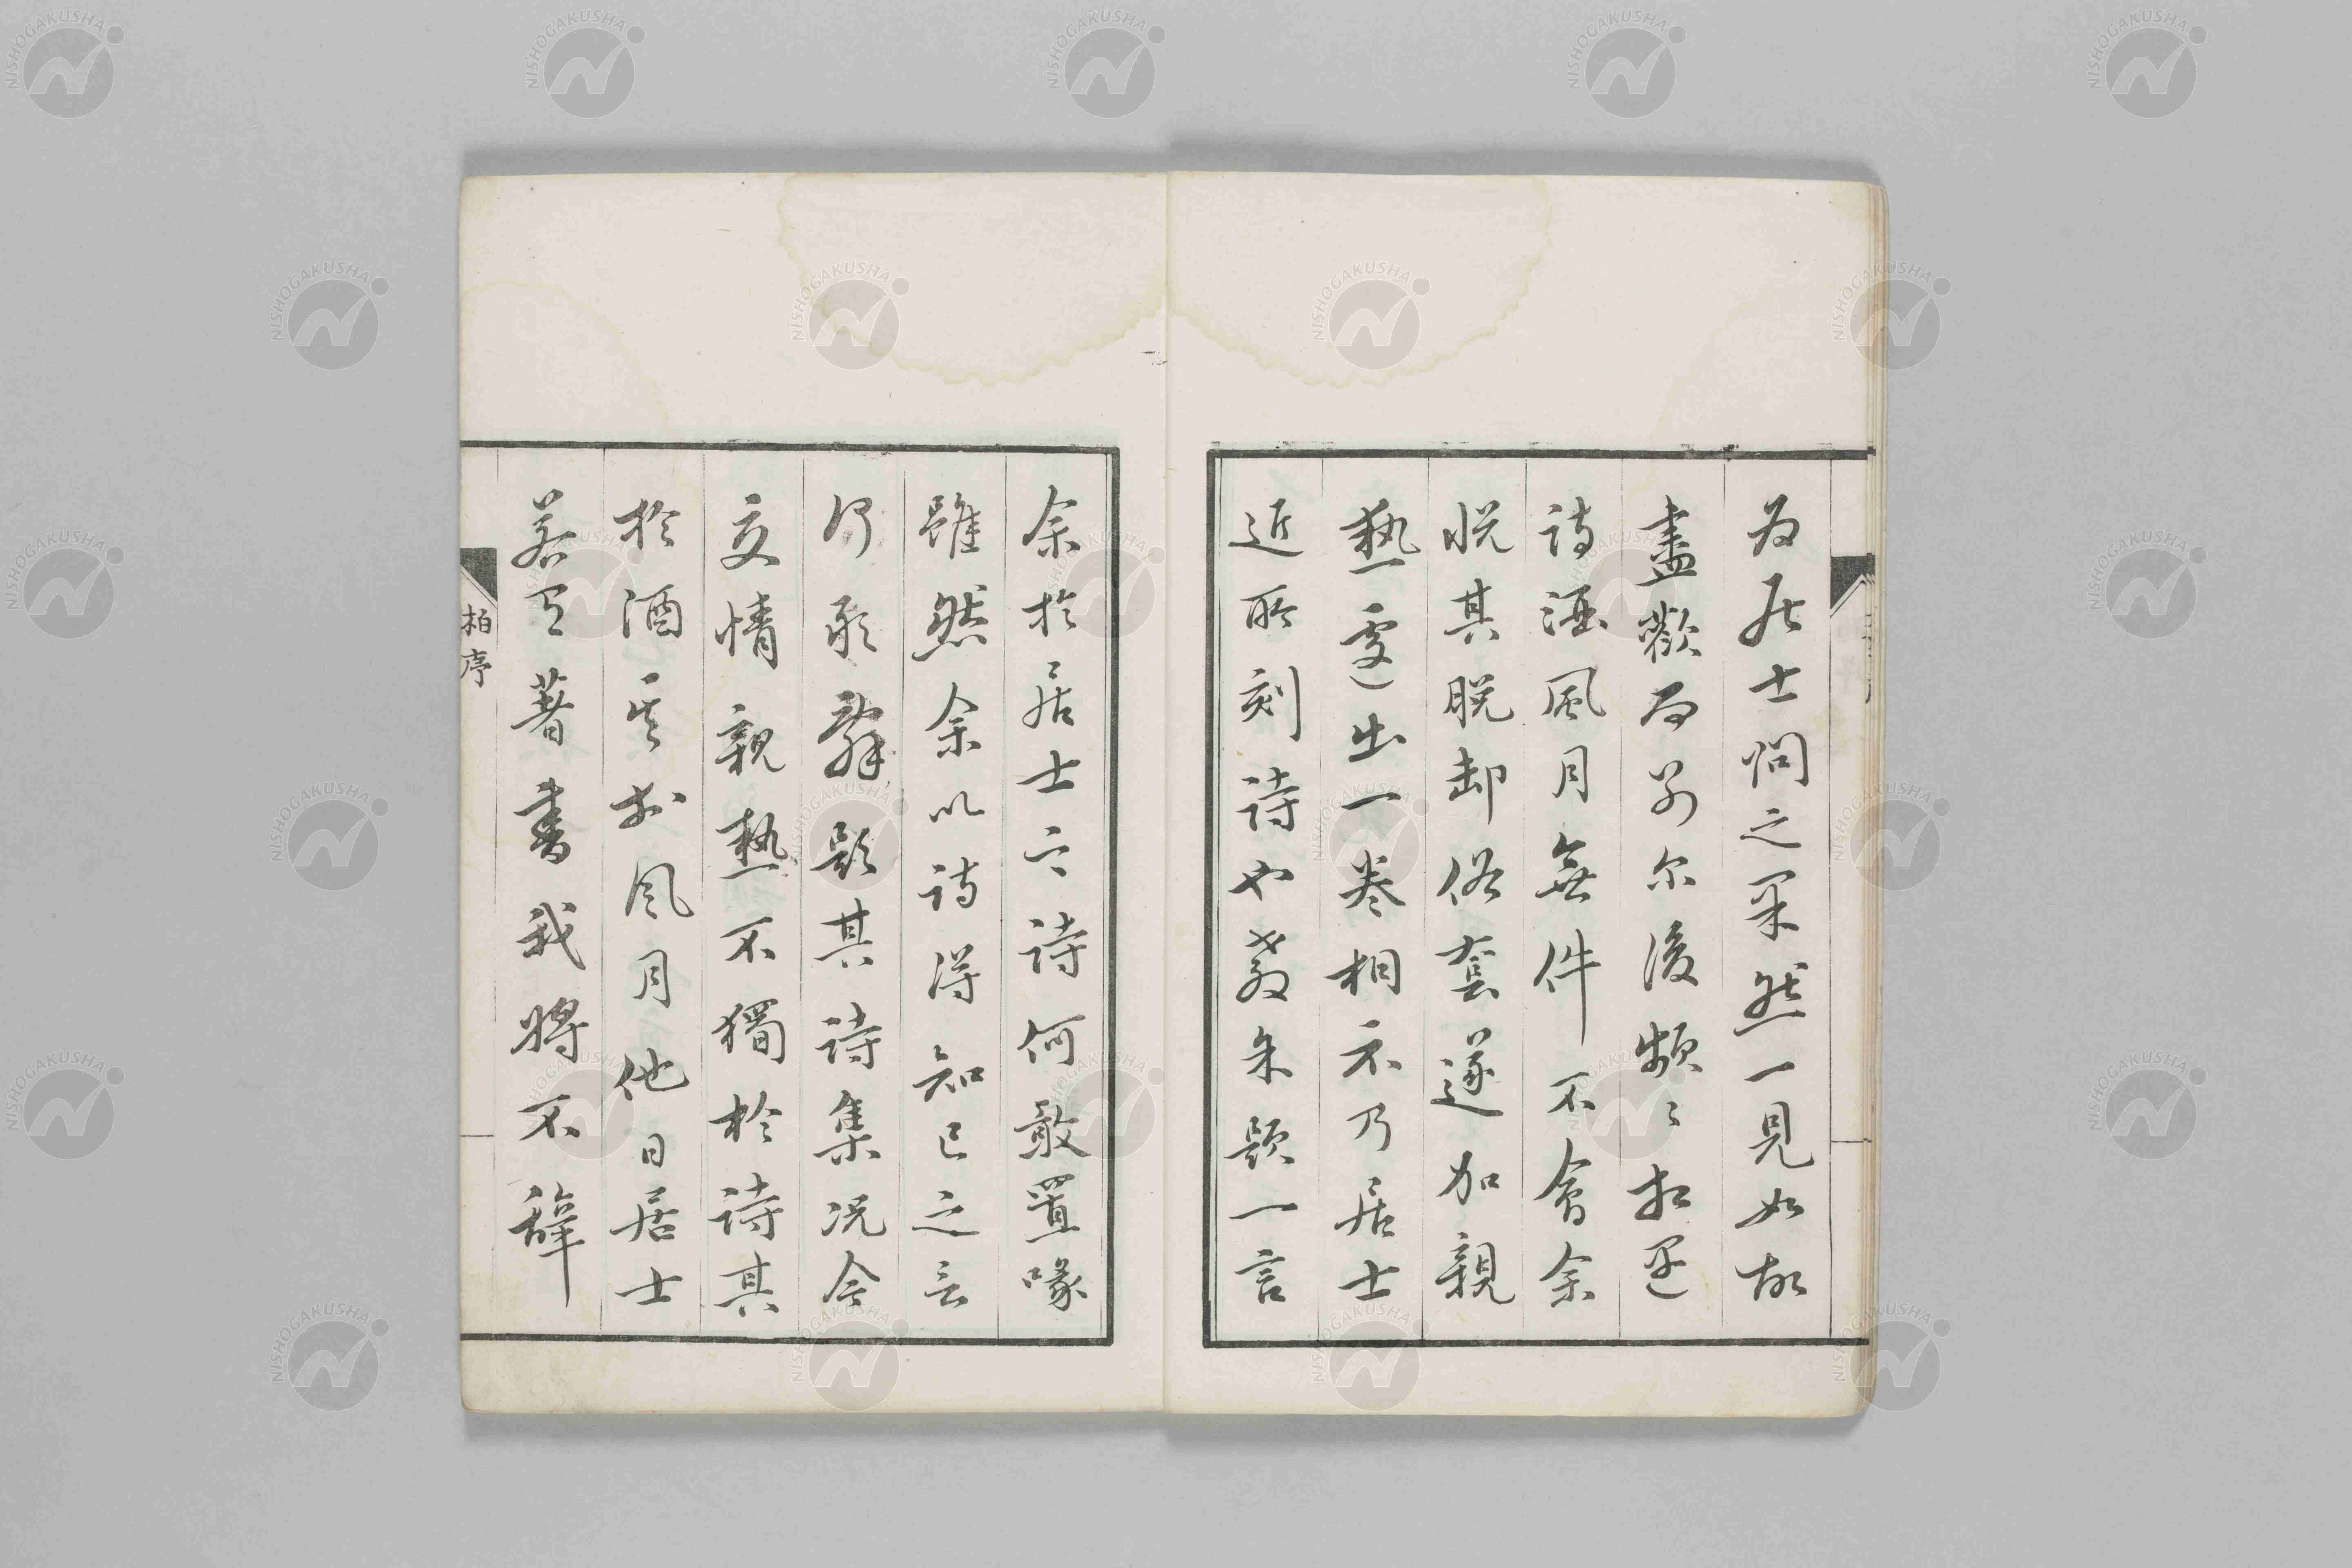 為居士問之果然一見如故
盡歡而別尔後頻〻相還
詩酒風月無件不會余
悅其脫却俗套遂加親
熱一處出一卷相示乃居士
近所刻詩也教余題一言
余於居士之詩何敢置喙
雖然余以詩得知己之言
何敢辭題其詩集況今
交情親熱不獨於詩其
於酒其於風月他日居士
若有著書我將不辭
柏序
NISHOGAKUSHA